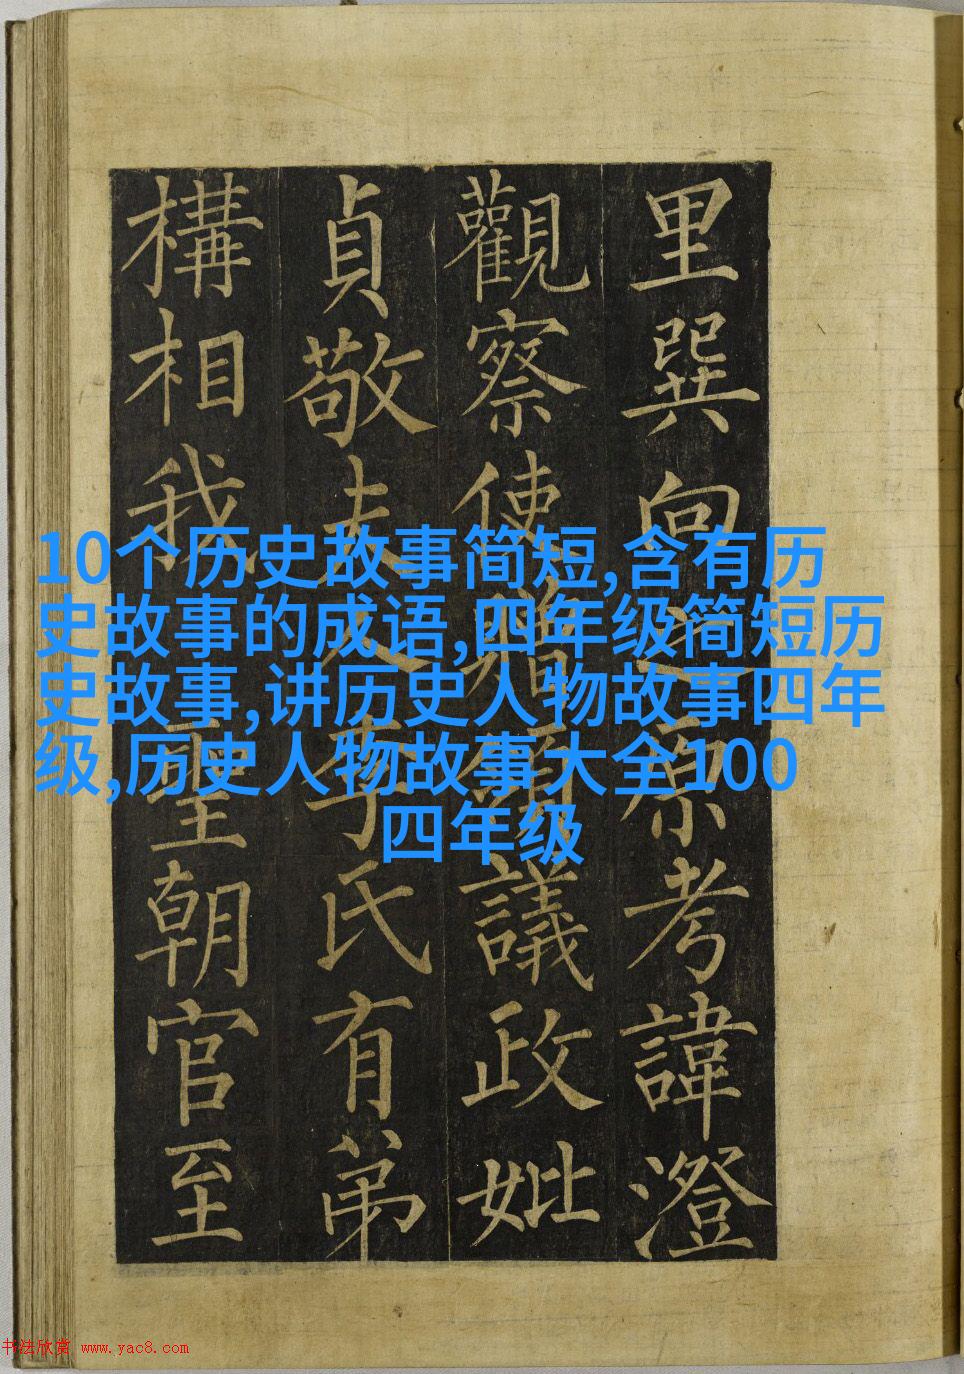 里巽向之原考諱澄
觀察使贈領議政妣
貞敬夫人李氏有弟
構相我聖朝官至
10个历史故事简短,含有历
史故事的成语,四年级简短历
史故事,讲历史人物故事四年
级,历史人物故事大全100
四年级
书法欣赏 www.yac8.com